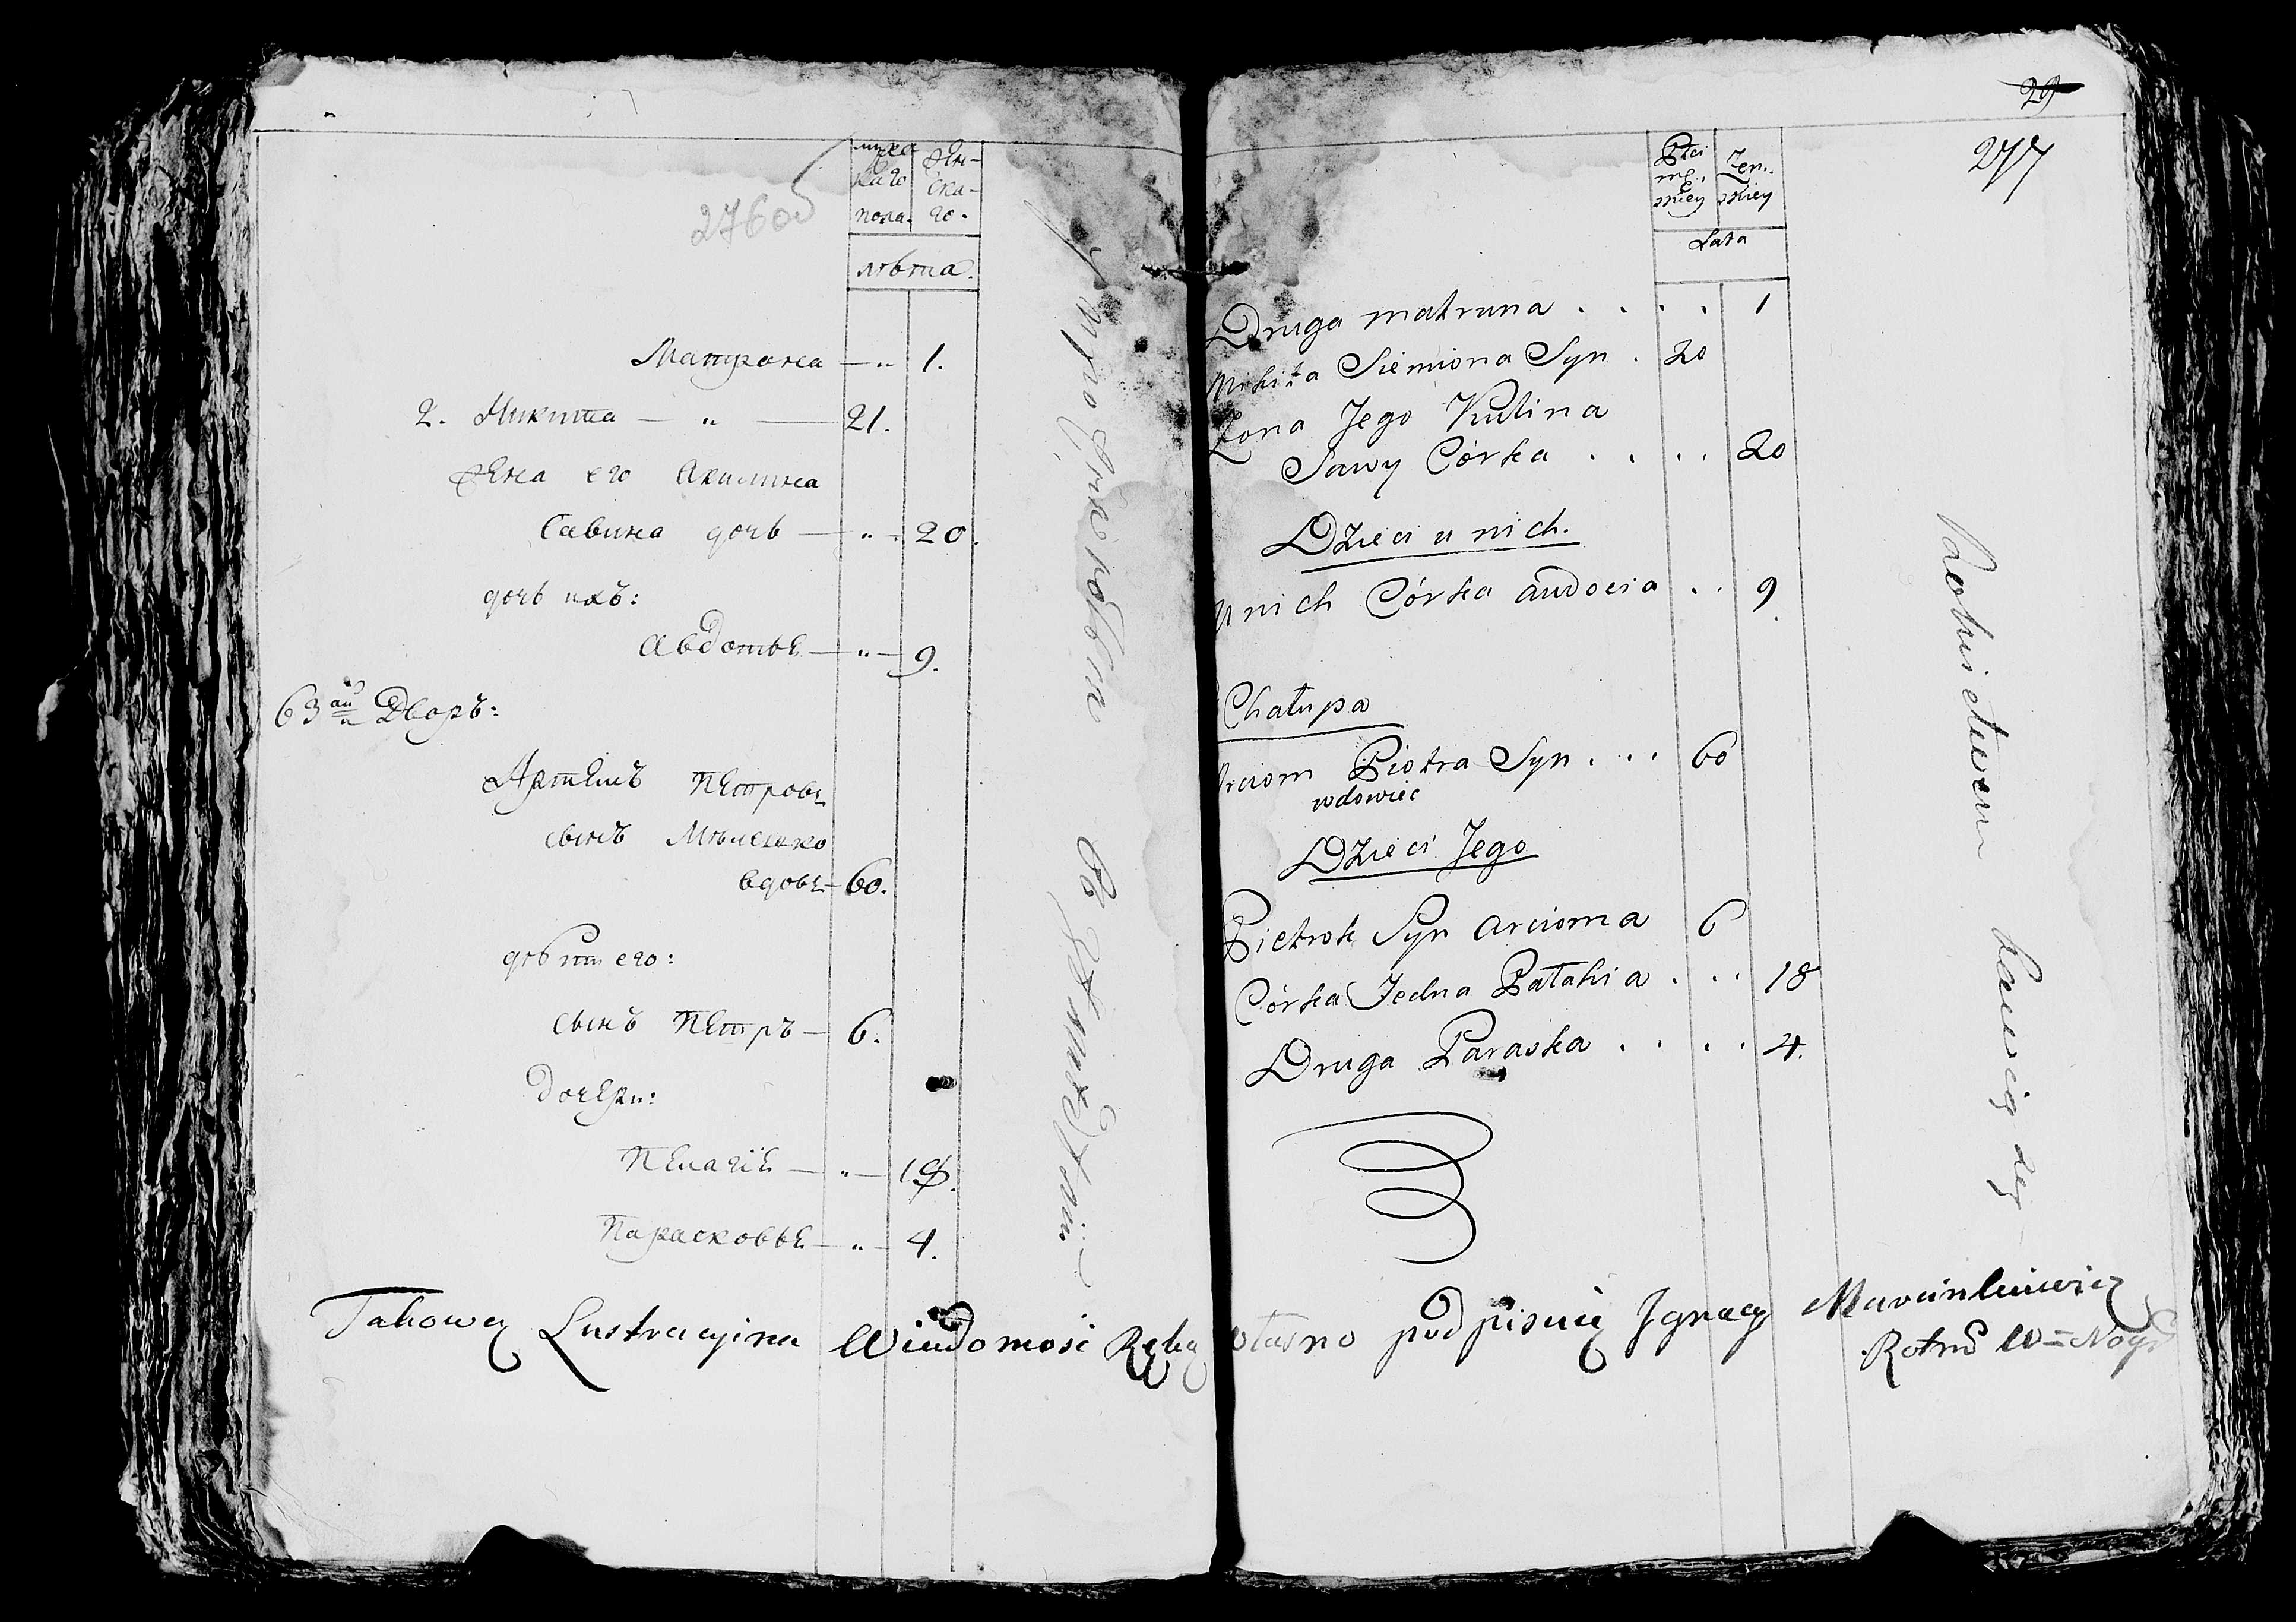 276об
мужес
каго
пола.
жен-
ска-
го.
лѣта.
Матрона — „ 1.
2. Никита — „ — 21.
Жена его Акилина
Савина дочь — „ — 20.
дочь ихъ:
Авдотья — „ — 9.
63ай Дворъ:
Артемъ Петровъ
сынъ
вдовъ — 60.
дѣти его:
сынъ Петръ — 6.
Дочери:
Пелагія — „ — 18.
Парасковья — „ — 4.
29
277
Płci
mę-
skiey
Żen-
skiey
Lata
Druga matruna . . . . 1
Mikita Siemiona Syn . 20
Żona Jego Kulina
Sawy Córka . . . . 20
Dzieci u nich.
U nich Córka audocia . . 9.
Chałupa
Arciom Piotra Syn . . . 60
wdowiec
Dzieci Jego
Pietrok Syn arcioma 6
Córka Jedna Pałahia . . . 18
Druga Paraska . . . . 4.
Takową Lustracyina Wiadomość Ręką własno podpisuię Ignacy Marcinkiewicz
Rotm W = Nog